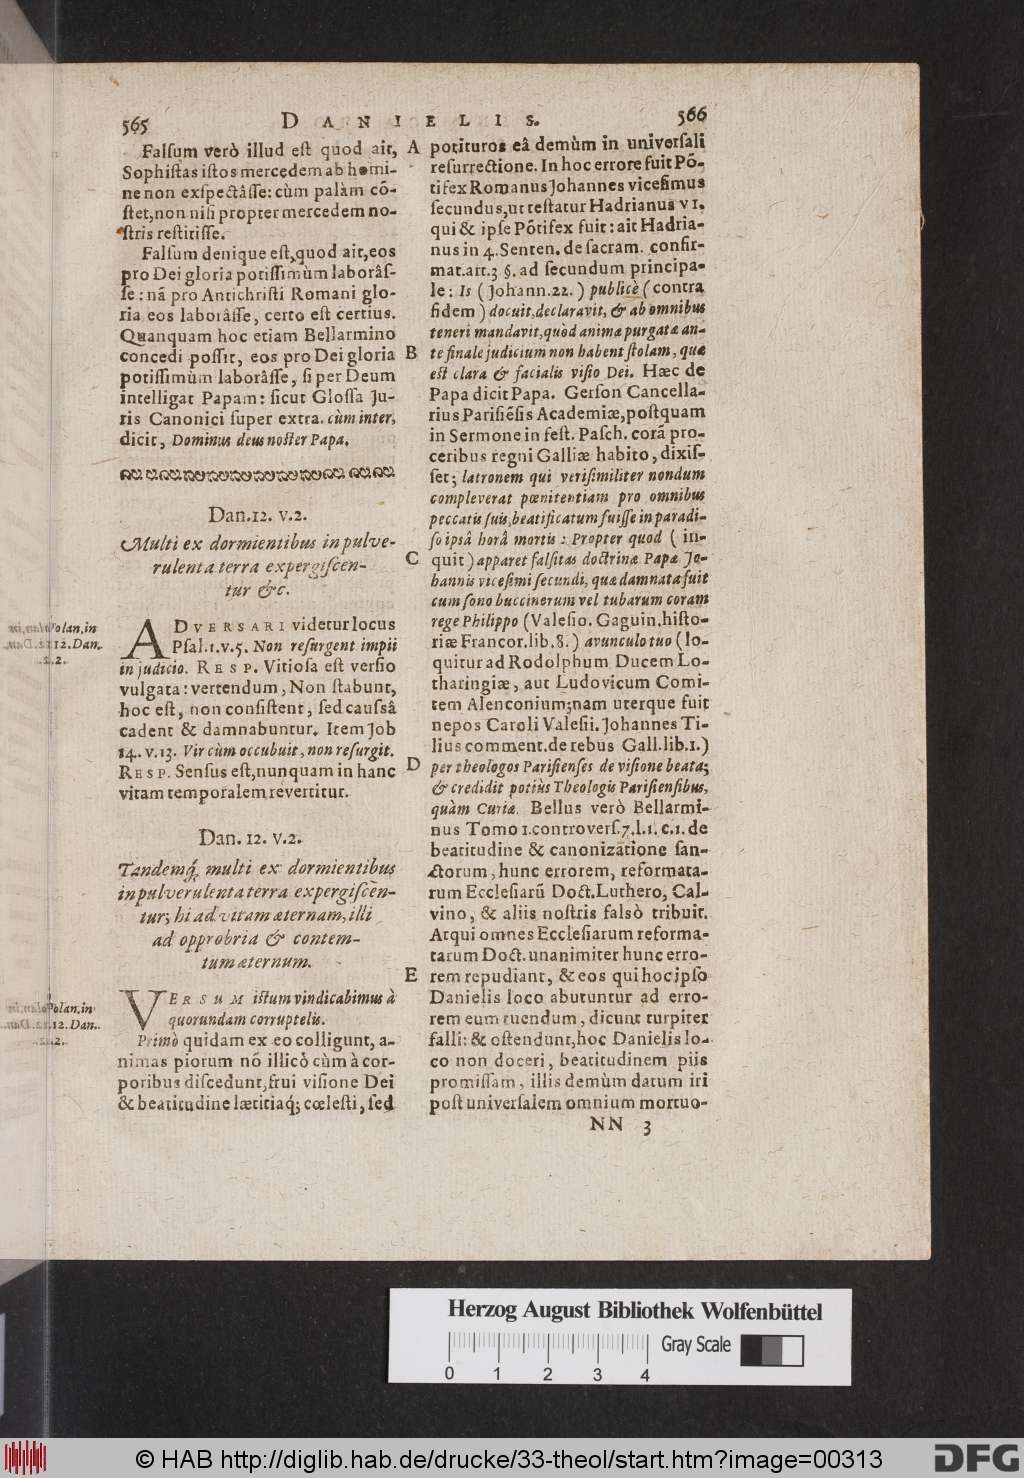 565
DANIELIS.
566
Falsum verò illud est quod ait,
Sophistas istos mercedem ab homi-
ne non exspectâsse: cùm palàm cō-
stet, non nisi propter mercedem no-
stris restitisse.
Falsum denique est, quod ait, eos
pro Dei gloria potissimùm laborâs-
se: nā pro Antichristi Romani glo-
ria eos laborâsse, certo est certius.
Quanquam hoc etiam Bellarmino
concedi possit, eos pro Dei gloria
potissimùm laborâsse, si per Deum
intelligat Papam: sicut Glossa Ju-
ris Canonici super extra. cùm inter,
dicit, Dominus deus noster Papa.
Dan. 12. v. 2.
Multi ex dormientibus in pulve-
rulenta terra expergiscen-
tur &c.
Polan. in
12. Dan.
2.
ADVERSARI videtur locus
Psal. 1. v. 5. Non resurgent impii
in judicio. RESP. Vitiosa est versio
vulgata: vertendum, Non stabunt,
hoc est, non consistent, sed caussâ
cadent & damnabuntur. Item Job
14. v. 13. Vir cùm occubuit, non resurgit.
RESP. Sensus est, nunquam in hanc
vitam temporalem revertitur.
Dan. 12. v. 2.
Tandemq́; multi ex dormientibus
in pulverulenta terra expergiscen-
tur; hi ad vitam æternam, illi
ad opprobria & contem-
tum æternum.
Polan. in
12. Dan.
2.
VERSUM istum vindicabimus à
quorundam corruptelis.
Primò quidam ex eo colligunt, a-
nimas piorum nō illicò cùm à cor-
poribus discedunt, frui visione Dei
& beatitudine lætitiaq́; cœlesti, sed
A potituros eâ demùm in universali
resurrectione. In hoc errore fuit Pō-
tifex Romanus Johannes vicesimus
secundus, ut testatur Hadrianus VI.
qui & ipse Pōtifex fuit: ait Hadria-
nus in 4. Senten. de sacram. confir-
mat. art. 3 §. ad secundum principa-
le: Is (Johann. 22.) publicè (contra
fidem) docuit, declaravit, & ab omnibus
teneri mandavit, quòd animæ purgatæ an-
B te finale judicium non habent stolam, quæ
est clara & facialis visio Dei. Hæc de
Papa dicit Papa. Gerson Cancella-
rius Parisiēsis Academiæ, postquam
in Sermone in fest. Pasch. corā pro-
ceribus regni Galliæ habito, dixis-
set; latronem qui verisimiliter nondum
compleverat pœnitentiam pro omnibus
peccatis suis, beatificatum fuisse in paradi-
so ipsâ horâ mortis: Propter quod (in-
C quit) apparet falsitas doctrinæ Papæ Jo-
hannis vicesimi secundi, quæ damnata fuit
cum sono buccinerum vel tubarum coram
rege Philippo (Valesio. Gaguin. histo-
riæ Francor. lib. 8.) avunculo tuo (lo-
quitur ad Rodolphum Ducem Lo-
tharingiæ, aut Ludovicum Comi-
tem Alenconium; nam uterque fuit
nepos Caroli Valesii. Johannes Ti-
lius comment. de rebus Gall. lib. 1.)
D per theologos Parisienses de visione beata;
& credidit potiùs Theologis Parisiensibus,
quàm Curiæ. Bellus verò Bellarmi-
nus Tomo 1. controvers. 7. l. 1. c. 1. de
beatitudine & canonizatione san-
ctorum, hunc errorem, reformata-
rum Ecclesiarū Doct. Luthero, Cal-
vino, & aliis nostris falsò tribuit.
Atqui omnes Ecclesiarum reforma-
tarum Doct. unanimiter hunc erro-
E rem repudiant, & eos qui hoc ipso
Danielis loco abutuntur ad erro-
rem eum tuendum, dicunt turpiter
falli: & ostendunt, hoc Danielis lo-
co non doceri, beatitudinem piis
promissam, illis demùm datum iri
post universalem omnium mortuo-
NN 3
Herzog August Bibliothek Wolfenbüttel
Gray Scale
0 1 2 3 4
© HAB http://diglib.hab.de/drucke/33-theol/start.htm?image=00313
DFG